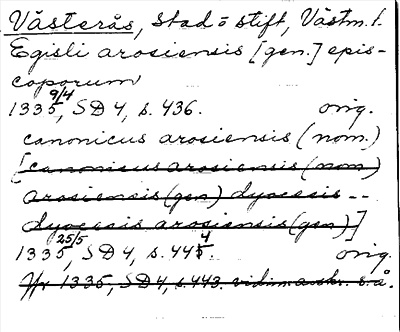 Västerås, stad o stift, Västm. l.
Egisli arosiensis [gen.] epis-
coporum
1335 9/4, SD 4, s. 436. orig.
canonicus arosiensis (nom.)
[canonicus arosiensis (nom)
arosiensis (gen) dyocesis --
dyocesis arosiensis (gen)]
1335 25/5, SD 4, s. 444. orig.
1335, SD 4, s. 443. vidim. avskr. s. å.